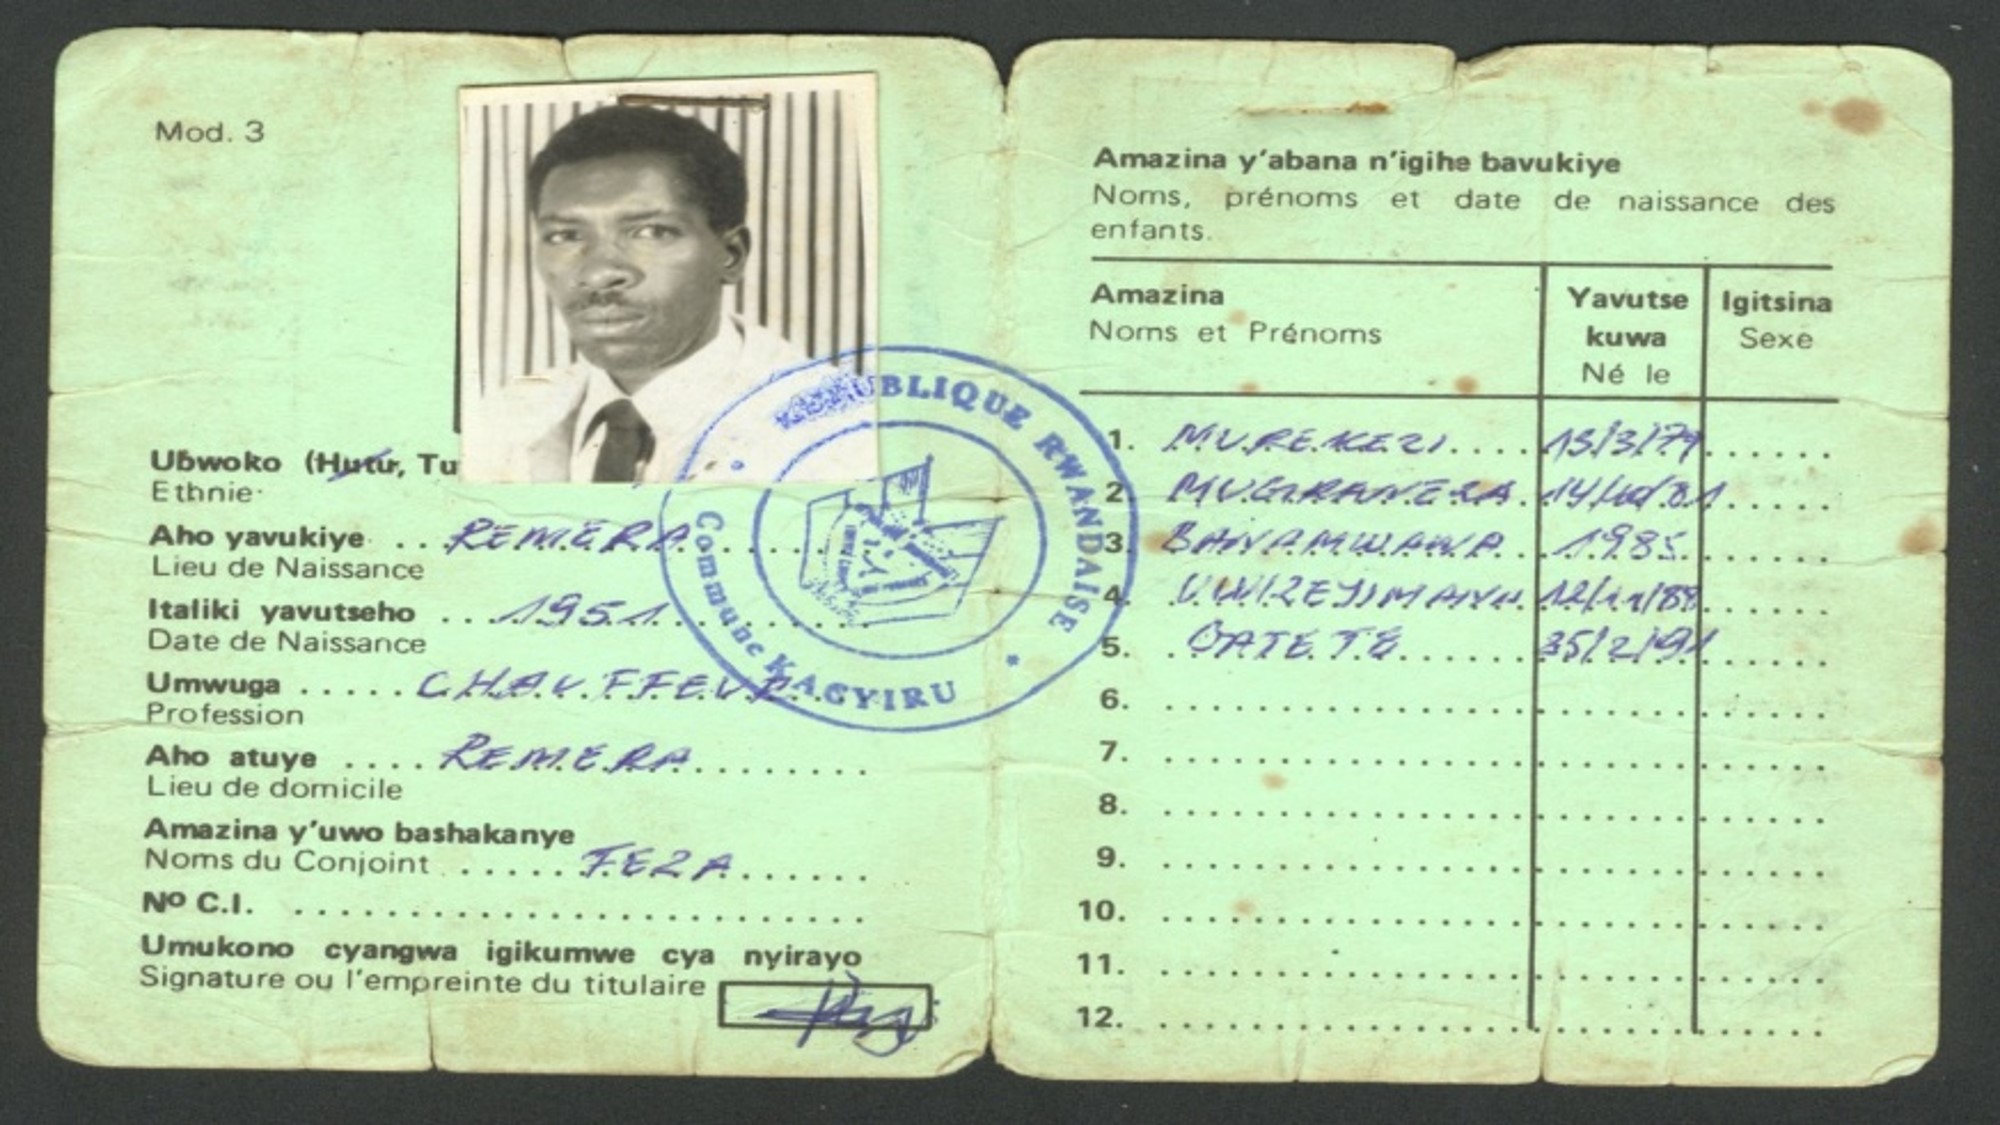 Mod. 3
Ubwoko (Hutu, Tu
Ethnie
Aho yavukiye . . REMERA
Lieu de Naissance
Italiki yavutseho . . . 1951
Date de Naissance
Umwuga . . . . . CHAUFFEUR
Profession
Aho atuye . . . . REMERA
Lieu de domicile
Amazina y'uwo bashakanye
Noms du Conjoint . . . . . . FEZA
Nº C.I.
Umukono cyangwa igikumwe cya nyirayo
Signature ou l'empreinte du titulaire
REPUBLIQUE RWANDAISE
Commune KACYIRU
Amazina y'abana n'igihe bavukiye
Noms, prénoms et date de naissance des
enfants.
Amazina
Noms et Prénoms
Yavutse
kuwa
Né le
Igitsina
Sexe
1. MUREKEZI 15/3/79
2. MUGIRANEZA 14/10/81
3. 1985
4. UWIZEYIMANA
5. GATETE 25/2/91
6.
7.
8.
9.
10.
11.
12.